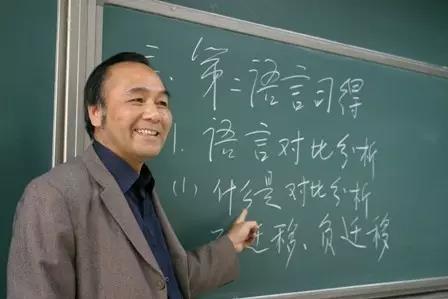 三. 第二语言习得
1. 语言对比分析
(1) 什么是对比分析
迁移、负迁移